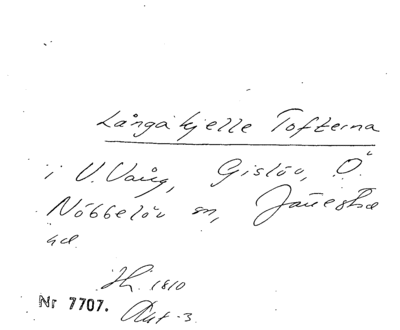 Långakjelle Tofterna
i V. Vång, Gislöv, Ö.
Nöbbelöv sn, Järrestad
hd.
Hh. 1810
Akt 3
Nr 7707.